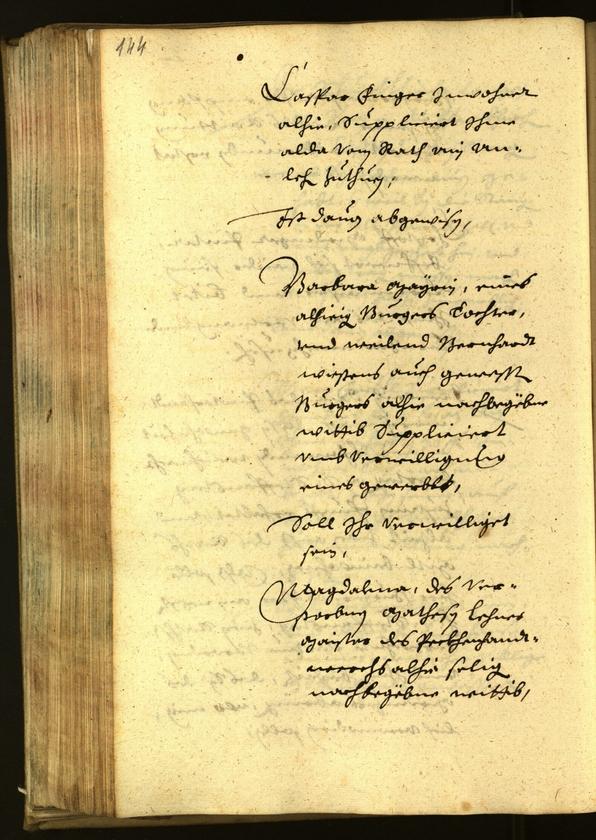 144
Caspar Singer Inwohner
alhie, Suppliciert Ihme
alda vom Rath ein An„
leh zuthuen,
Ist daruz abgewisen,
Barbara Mayrin, eines
alhieig Burgers Tochter,
und weilend Bernhardt
auch gewesten
Burgers alhie nachbegebne
wittib Suppliciert
umb verwilligung
eines gewerbbs,
Soll Ihr verwilliget
sein,
Magdalena, des Ver„
storbnen Mathesen Lehner
Maister des Peckhenhandt„
werchs alhie selig
nachbegebne wittib,